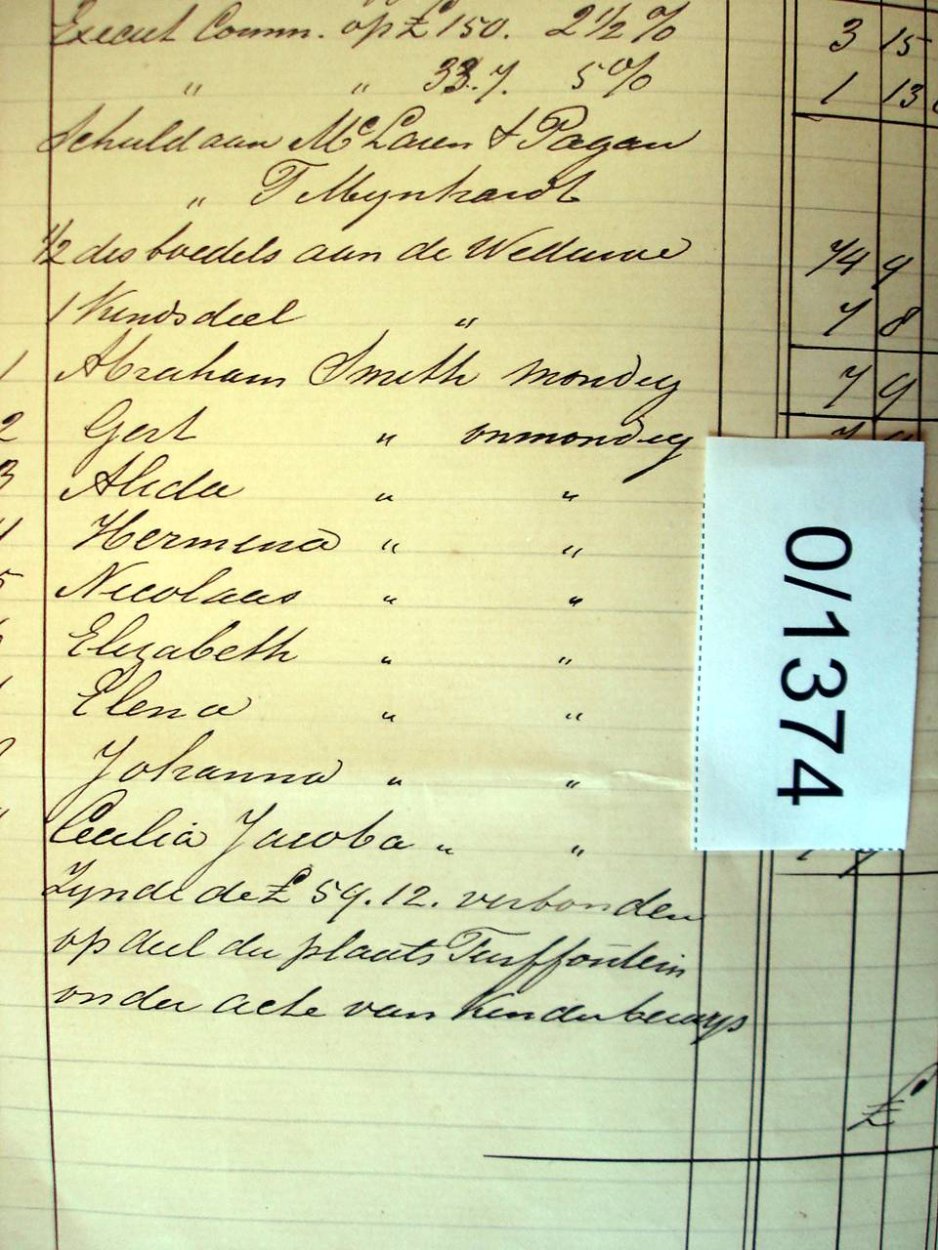 Execut Comm. op £ 150. 2½ % 3 15
" " 33.7. 5% 1 13
Schuld aan McLaren & Pagan
" T Mynhardt
½ des boedels aan de Weduwe 74 9
1 Kindsdeel " 7 8
1 Abraham Smith mondig 7 9
2 Gert " onmondig
3 Alida " "
4 Hermina " "
5 Nicolaas " "
6 Elizabeth " "
Elena " "
Johanna " "
Cecilia Jacoba " "
Zynde de £ 59.12. verbonden
op deel der plaats Turffontein
onder acte van Kinderbewys
£
0/1374